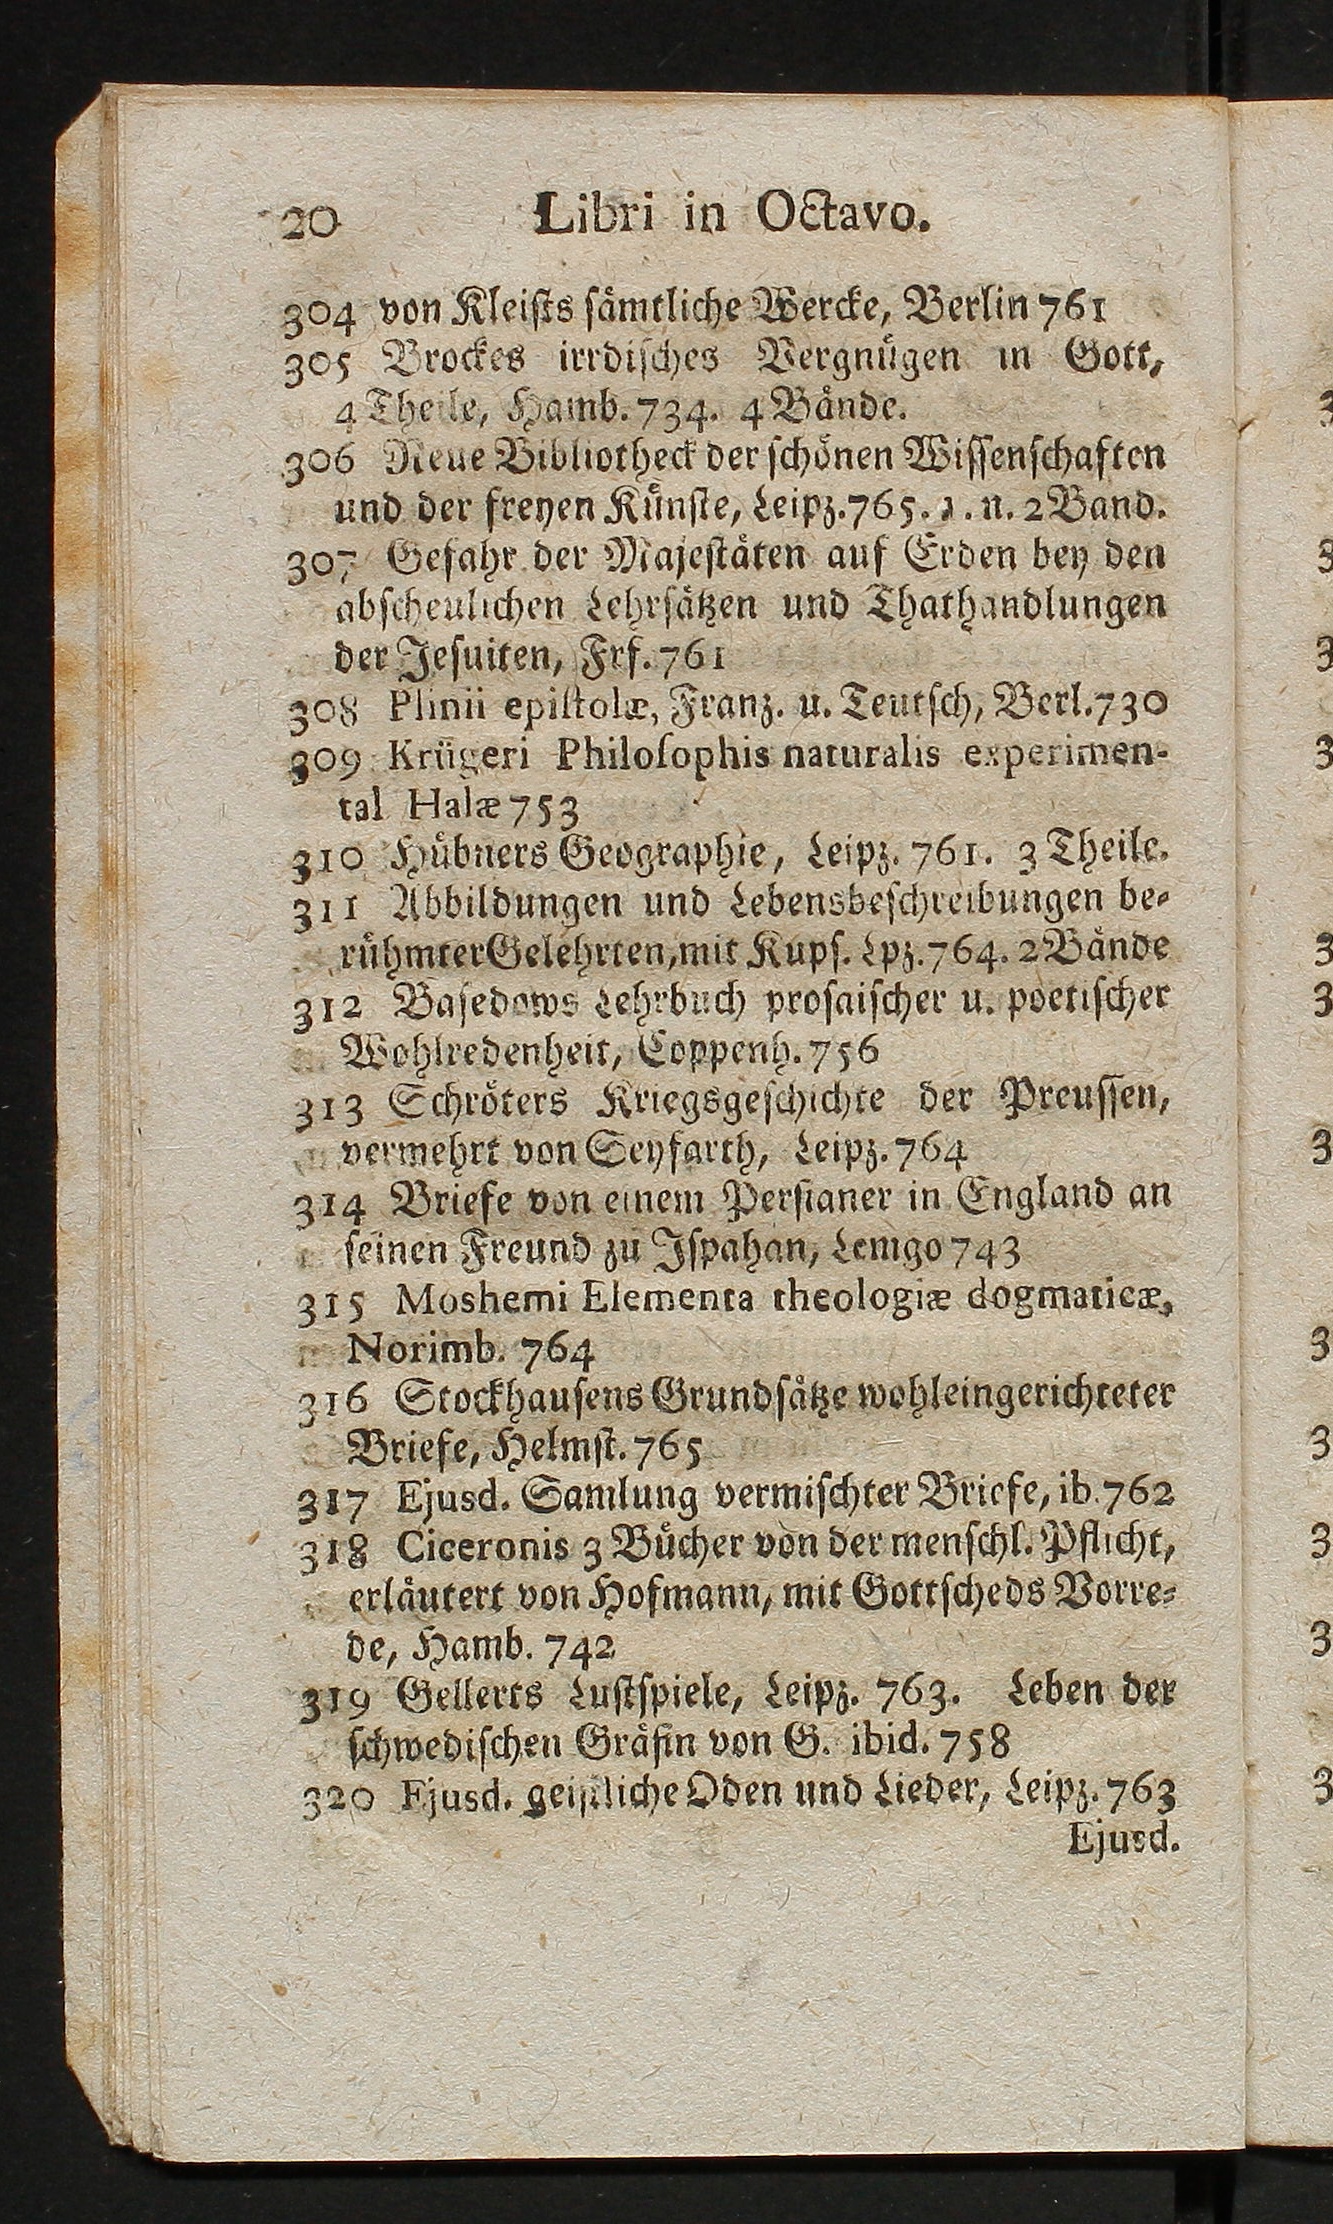 20 Libri in Octavo.
304 von Kleists sämtliche Wercke, Berlin 761
305 Brockes irrdisches Vergnügen in Gott,
4 Theile, Hamb. 734. 4 Bände.
306 Neue Bibliotheck der schönen Wissenschaften
und der freyen Künste, Leipz. 765. 1. u. 2 Band.
307 Gefahr der Majestäten auf Erden bey den
abscheulichen Lehrsätzen und Thathandlungen
der Jesuiten, Frf. 761
308 Plinii epistolæ, Franz. u. Teutsch, Berl. 730
309 Krügeri Philosophis naturalis experimen-
tal Halæ 753
310 Hübners Geographie, Leipz. 761. 3 Theile.
311 Abbildungen und Lebensbeschreibungen be-
rühmter Gelehrten, mit Kupf. Lpz. 764. 2 Bände
312 Basedows Lehrbuch prosaischer u. poetischer
Wohlredenheit, Coppenh. 756
313 Schröters Kriegsgeschichte der Preussen,
vermehrt von Seyfarth, Leipz. 764
314 Briefe von einem Persianer in England an
seinen Freund zu Ispahan, Lemgo 743
315 Moshemi Elementa theologiæ dogmaticæ,
Norimb. 764
316 Stockhausens Grundsätze wohleingerichteter
Briefe, Helmst. 765
317 Ejusd. Samlung vermischter Briefe, ib. 762
318 Ciceronis 3 Bücher von der menschl. Pflicht,
erläutert von Hofmann, mit Gottscheds Vorre-
de, Hamb. 742
319 Gellerts Lustspiele, Leipz. 763. Leben der
schwedischen Gräfin von G. ibid. 758
320 Ejusd. geistliche Oden und Lieder, Leipz. 763
Ejusd.